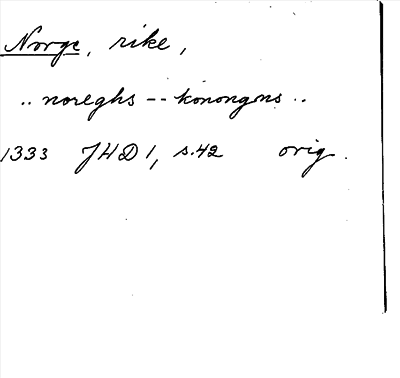 Norge, rike,
.. noreghs -- konongns ..
1333 JHD 1, s. 42 orig.